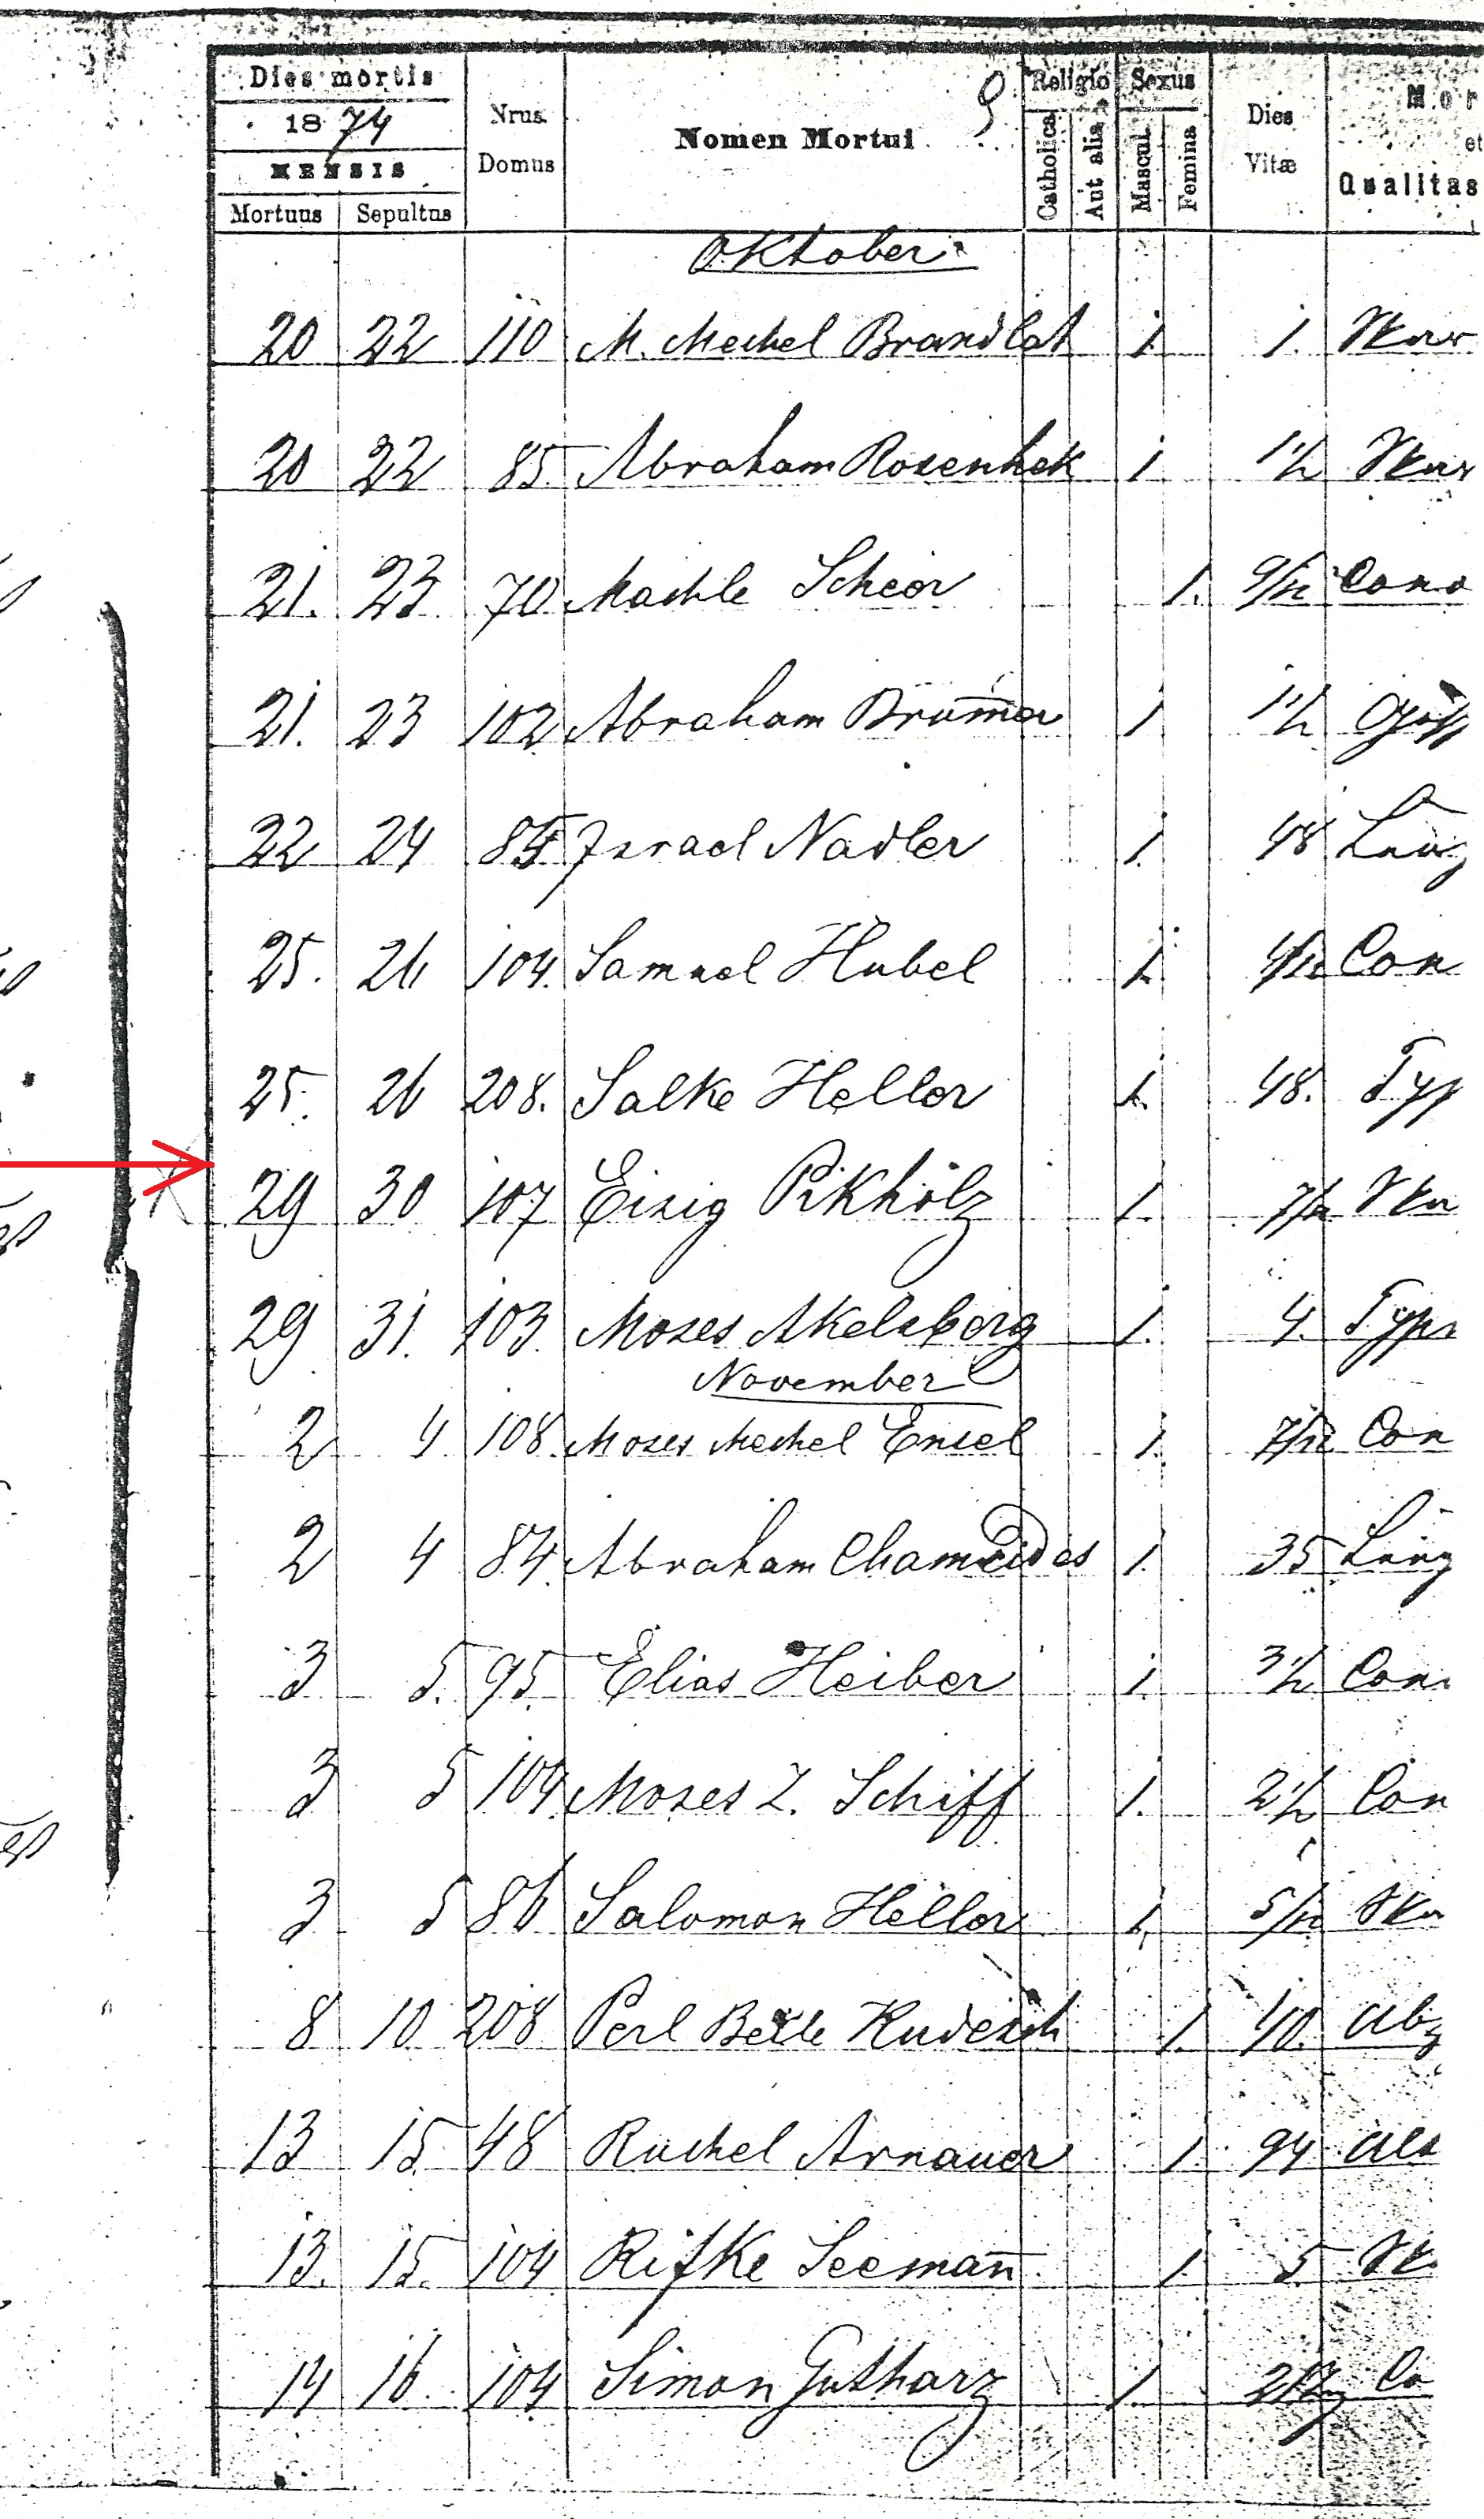 Dies mortis Nrus. Domus Nomen Mortui 9. Religio Sexus Dies Vitæ Mor et Qualitas
1874
MENSIS
Mortuus Sepultus Catholica Aut alia Mascul. Femina
Oktober
20 22 110 M. Mechel Brandlat 1 1. Skar
20 22 85. Abraham Rosenhek 1 1½ Skar
21. 23 70 Machle Scheer 1. 9/12 Conv
21. 23 102 Abraham Brum̄er 1 1½
22 24 85 Israel Nadler 1. 48 Lung
25. 26 104. Samuel Hubel 1. 4/12 Con
25. 26 208. Salke Heller 1. 48. Typ
29 30 107 Eisig Pikholz 1. 7/12 Ska
29 31. 103. Moses Akelsberg 1. 4. Typh
November
2 4. 108. Moses Mechel Ensel 1. 7/12 Con
2 4 84. Abraham Chameides 1. 35 Lung
3 5. 95. Elias Heiber 1. 3½ Con
3 5 104. Moses Z. Schiff 1. 2½ Con
3 5 86 Salomon Heller 1. 5/12 Ska
8 10. 208 Perl Beile Kudesch 1. 40. Abz
13 15. 48 Ruchel Arnauer 1. 94 Alt
13. 15. 104 Rifke Seeman̄ 1. 5 Sk
14 16. 104 Simon Gutharz 1. Co